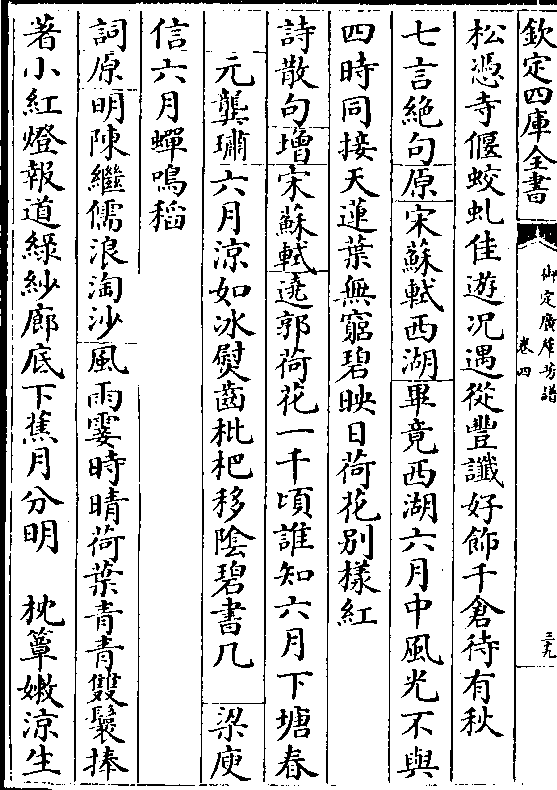 欽定四庫全書
御定廣羣芳譜
卷四
三九
松憑寺偃蛟虬佳遊况遇從豐讖好飾千倉待有秋
七言絶句原宋蘇軾西湖畢竟西湖六月中風光不與
四時同接天蓮葉無窮碧映日荷花别樣紅
詩散句增宋蘇軾遶郭荷花一千頃誰知六月下塘春
元龔璛六月涼如冰熨齒枇杷移陰碧書几 梁庾
信六月蟬鳴稻
詞原明陳繼儒浪淘沙風雨霎時晴荷葉青青雙鬟捧
著小紅燈報道綠紗廊底下蕉月分明 枕簟嫩涼生